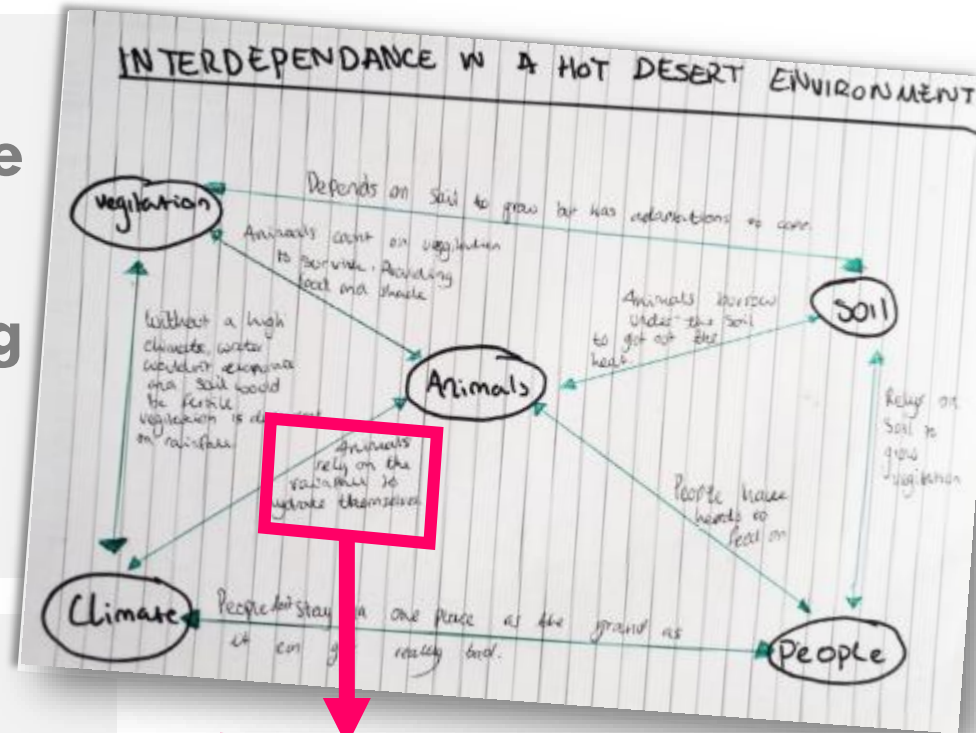 e
g
INTERDEPENDANCE IN A HOT DESERT ENVIRONMENT
vegitation
Depends on soil to grow but has adaptations to
Animals count on vegitation
to survive. Providing
food and shade
Animals burrow
under the soil
to get out the
heat.
SOIL
Without a high
climate, water
wouldn't
and soil would
be fertile
vegitation is
on rainfall
Animals
Animals
rely on the
to
themselves
Relys on
soil to
grow
vegitation
People have
herds to
feed on
Climate
People don't stay in one place as the ground as
it can get really bad.
People